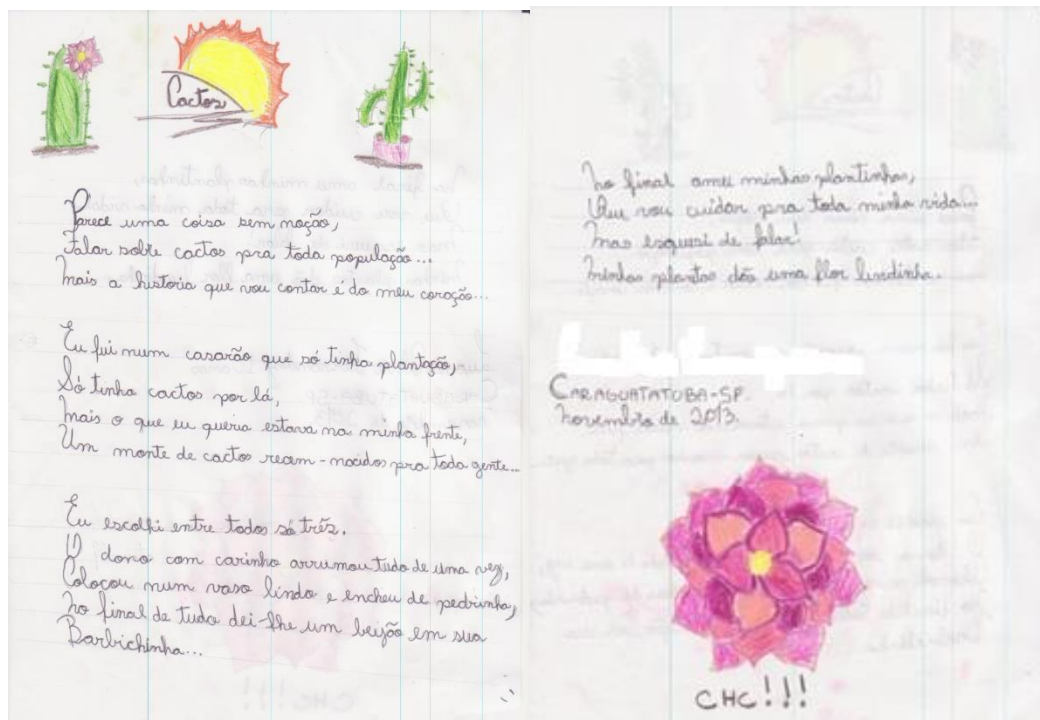 Cactos
Parece uma coisa sem noção,
Falar sobre cactos pra toda população...
Mais a historia que vou contar é do meu coração...
Eu fui num casarão que só tinha plantação,
Só tinha cactos por lá,
Mais o que eu queria estava na minha frente,
Um monte de cactos recem-nacidos pra toda gente...
Eu escolhi entre todos só três.
O dono com carinho arrumou tudo de uma vez,
Colocou num vaso lindo e encheu de pedrinha,
No final de tudo dei-lhe um beijão em sua
Barbichinha...
No final amei minhas plantinhas,
Eu vou cuidar pra toda minha vida...
Mas esqueci de falar!
Minhas plantas dão uma flor lindinha.
CARAGUATATUBA-SP.
Novembro de 2013.
CHC!!!